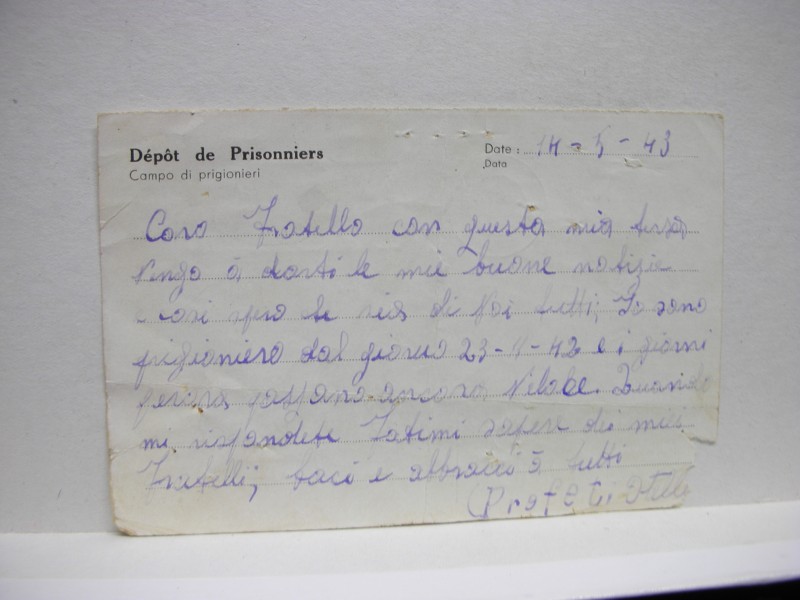 Dépôt de Prisonniers
Campo di prigionieri
Date : 14-5-43
Data
Caro Fratello con questa mia terza
Vengo à darti le mie buone notizie
così spero le sia di Voi tutti; Io sono
prigioniero dal giorno 23-11-42 e i giorni
passano ancora Veloce. Quando
mi rispondete Fatimi sapere dei miei
Fratelli; baci e abbracci à tutti
(Profeti